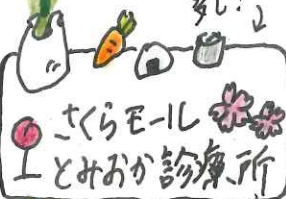 さくらモール
とみおか診療所